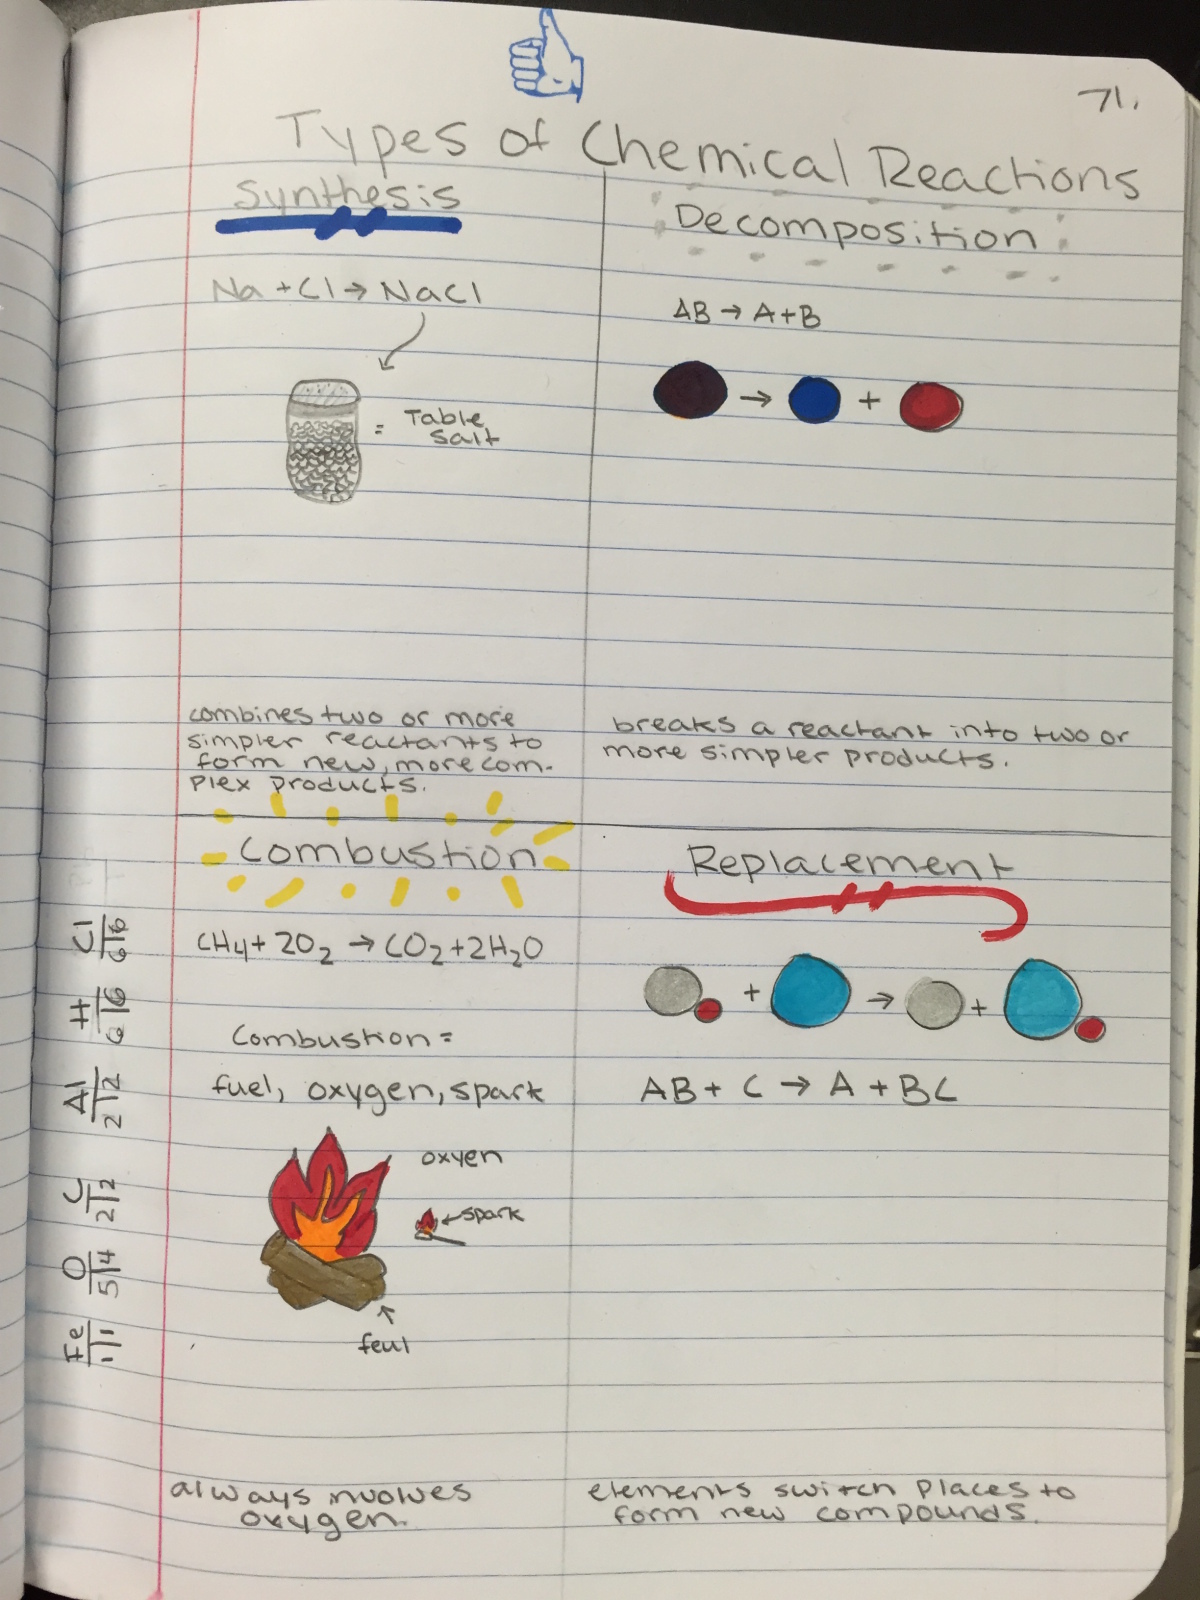 71.
Types of Chemical Reactions
Synthesis
Na + Cl → NaCl
= Table
Salt
combines two or more
simpler reactants to
form new, more com-
plex products.
Decomposition
AB → A + B
→ +
breaks a reactant into two or
more simpler products.
Combustion
CH4 + 2O2 → CO2 + 2H2O
Combustion =
fuel, oxygen, spark
oxyen
←spark
feul
always involves
oxygen.
Replacement
+ → +
AB + C → A + BC
elements switch places to
form new compounds.
Fe
1|1
O
5|4
C
2|2
Al
2|2
H
6|6
Cl
6|6